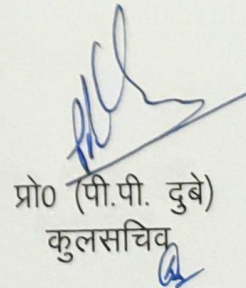 प्रो0 (पी.पी. दुबे)
कुलसचिव